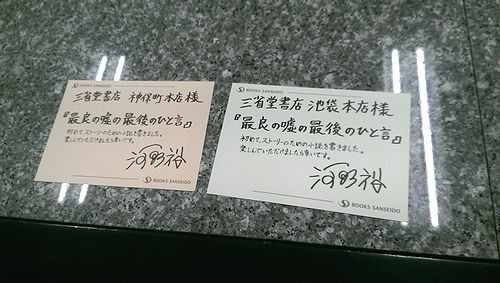 BOOKS SANSEIDO
三省堂書店 神保町本店様
『最良の嘘の最後のひと言』
初めて、ストーリーのための小説を書きました。
楽しんでいただけましたら幸いです。
河野裕
BOOKS SANSEIDO
BOOKS SANSEIDO
三省堂書店 池袋本店様
『最良の嘘の最後のひと言』
初めて、ストーリーのための小説を書きました。
楽しんでいただけましたら幸いです。
河野裕
BOOKS SANSEIDO